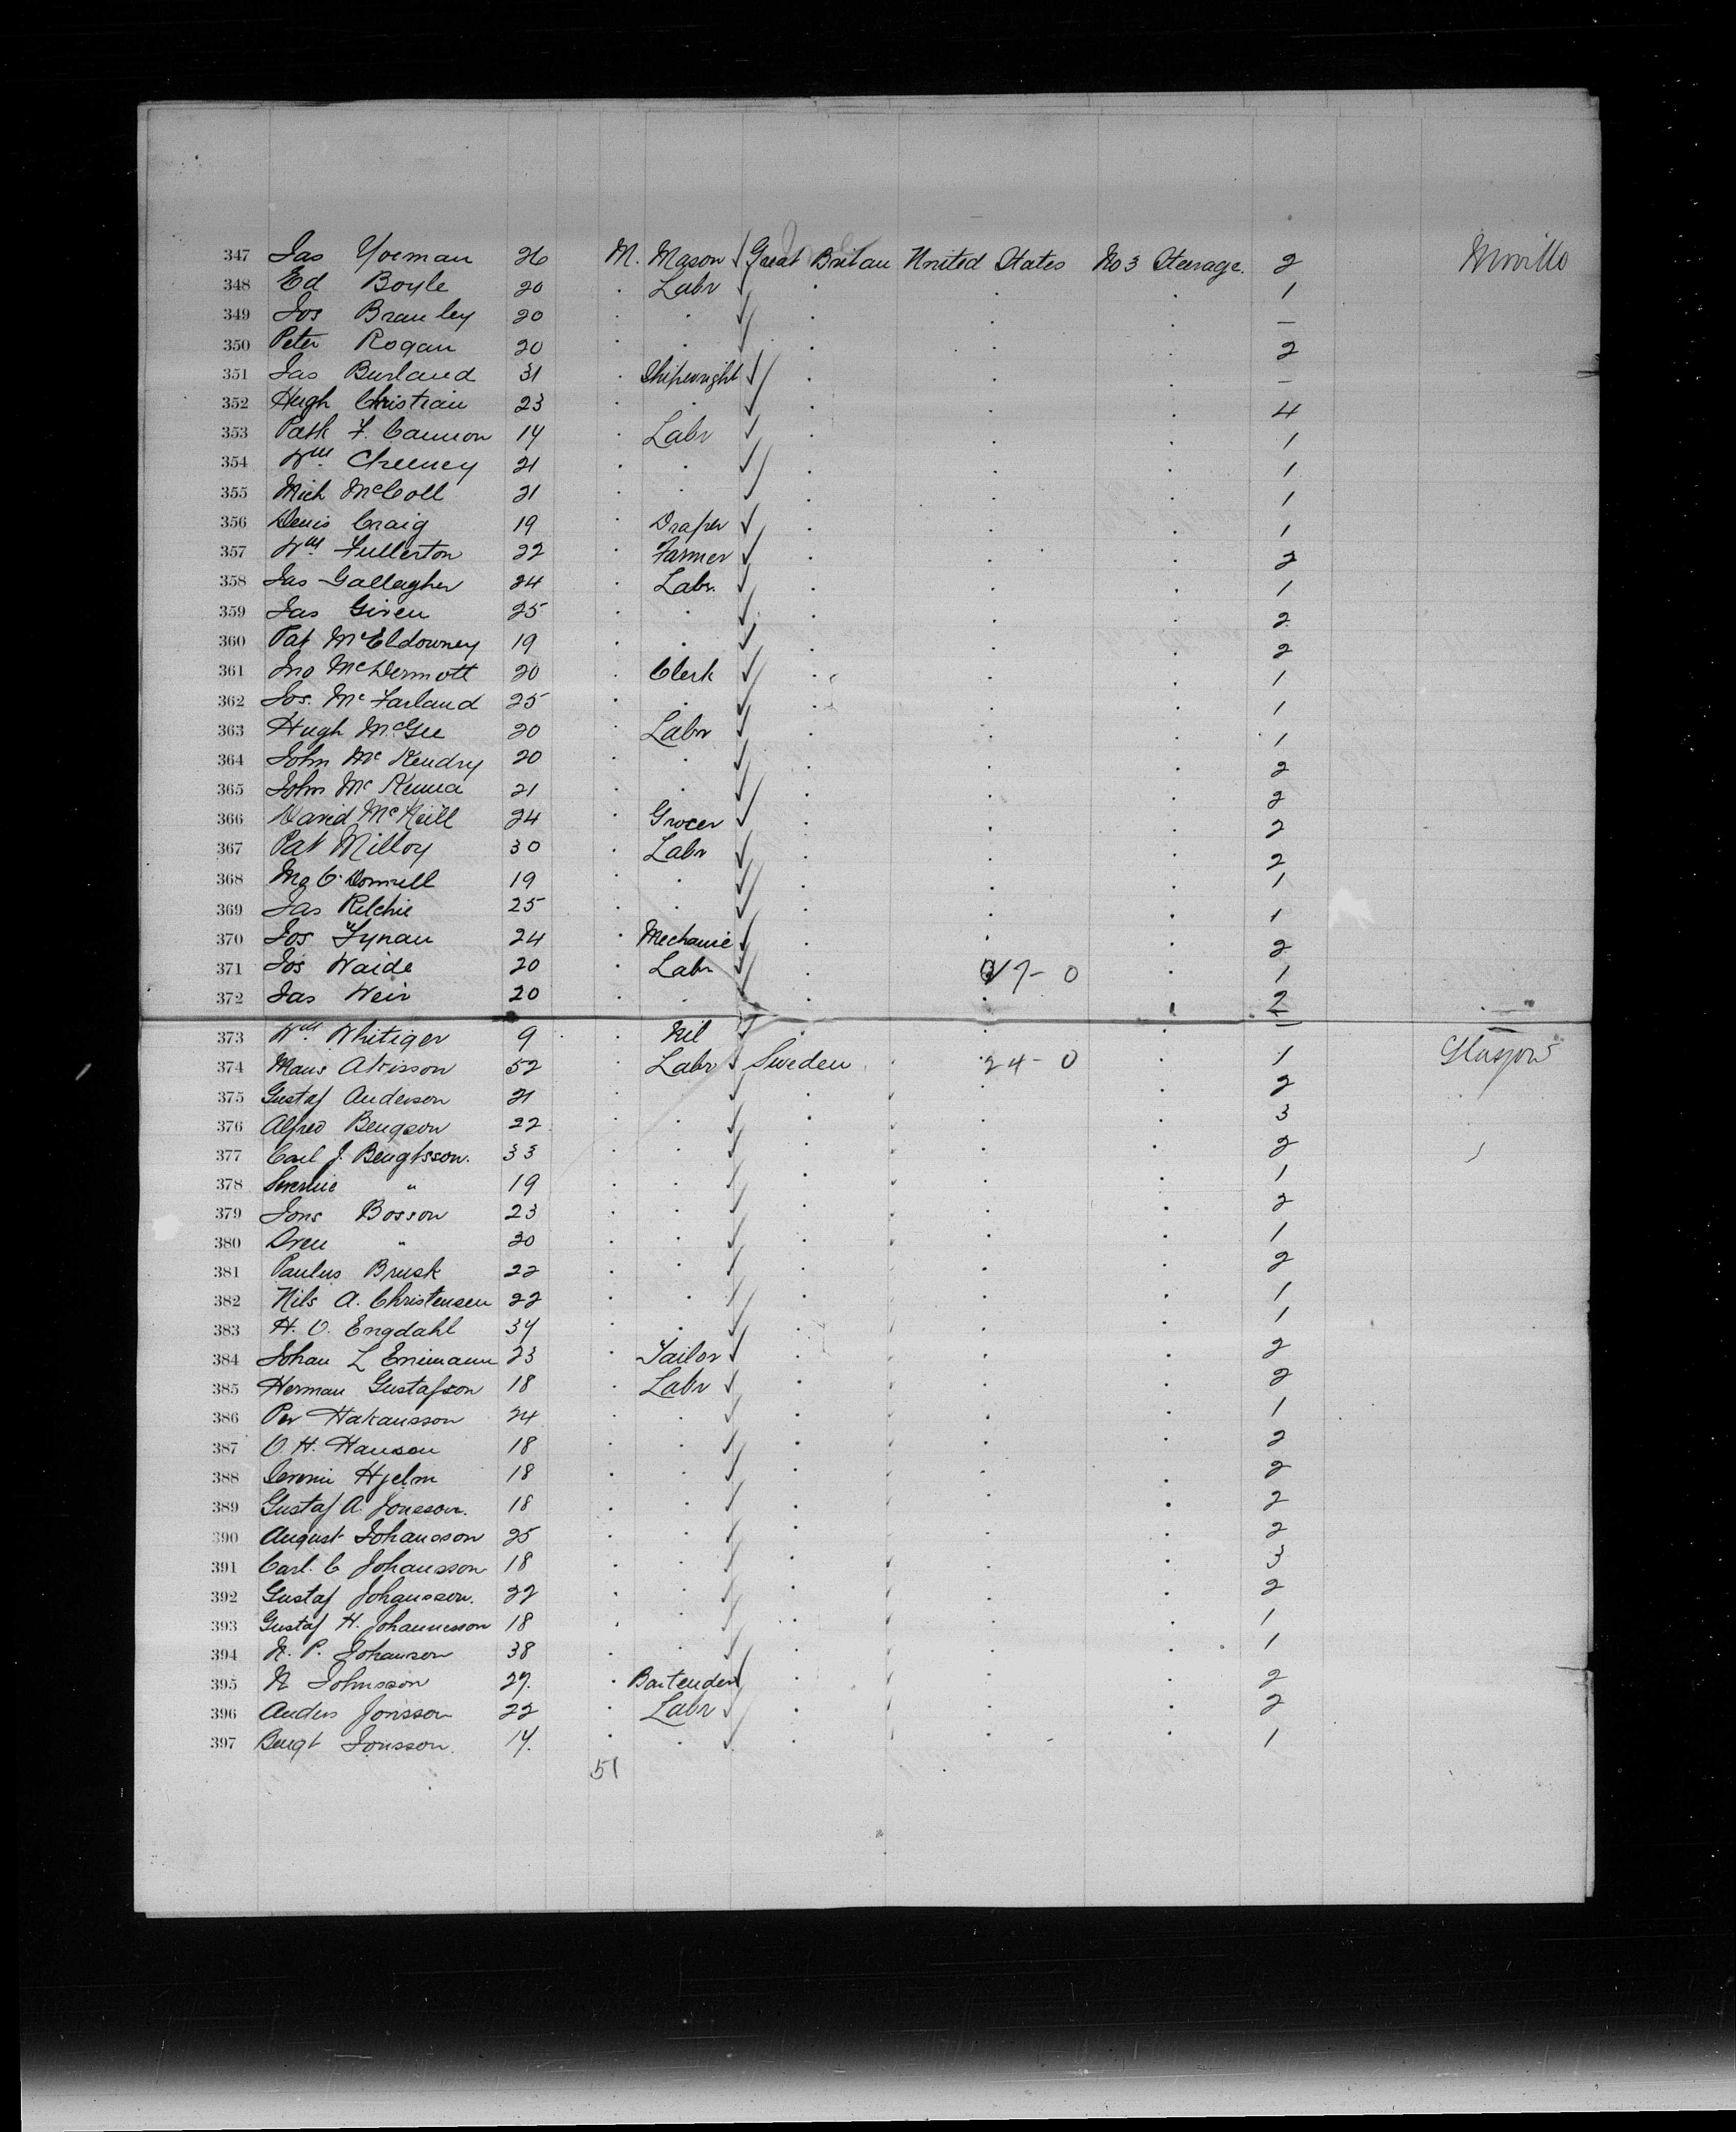 347 Jas Yoeman 26 M. Mason Great Britain United States No 3 Steerage. 2 Moville
348 Ed Boyle 20 . Labr . . . 1
349 Jos Branley 20 . . . . . —
350 Peter Rogan 20 . . . . . 2
351 Jas Burland 31 . Shipwright . . . —
352 Hugh Christian 23 . . . . . 4
353 Patk F. Cannon 14 . Labr . . . 1
354 Wm Cheeney 21 . . . . . 1
355 Mich McColl 21 . . . . . 1
356 Denis Craig 19 . Draper . . . 1
357 Wm Fullerton 22 . Farmer . . . 2
358 Jas Gallagher 24 . Labr. . . . 1
359 Jas Given 25 . . . . . 2
360 Pat McEldowney 19 . . . . . 2
361 Jno McDermott 20 . Clerk . . . 1
362 Jos. McFarland 25 . . . . . 1
363 Hugh McGee 20 . Labr . . . 1
364 John McKendry 20 . . . . . 2
365 John McKenna 21 . . . . . 2
366 David McNeill 24 . Grocer . . . 2
367 Pat Milloy 30 . Labr . . . 2
368 O'Donnell 19 . . . . . 1
369 Jas Ritchie 25 . . . . . 1
370 Jos Tynan 24 . Mechanic . . . 2
371 Jos Waide 20 . Labr . 17-0 . 1
372 Jas Weir 20 . . . . . 2
373 Wm Whitiger 9 . Nil . . —
374 Mans Akisson 52 Labr Sweden . 24-0 . 1 Glasgow
375 Gustaf Anderson 21 . . . . . 2
376 Alfred Bengson 22 . . . . . 3
377 Carl J. Bengtsson. 33 . . . . . 2
378 " 19 . . . . . 1
379 Jons Bosson 23 . . . . . 2
380 " 30 . . . . . 1
381 Paulus Brusk 22 . . . . . 2
382 Nils A. Christensen 22 . . . . . 1
383 H. O. Engdahl 34 . . . . . 1
384 Johan L 23 . Tailor . . . 2
385 Herman Gustafson 18 . Labr . . . 2
386 Per Hakansson 24 . . . . . 1
387 O. H. Hanson 18 . . . . . 2
388 Hjelm 18 . . . . . 2
389 Gustaf A. Jonsson. 18 . . . . . 2
390 August Johansson 25 . . . . . 2
391 Carl. C Johansson 18 . . . . . 3
392 Gustaf Johansson. 22 . . . . . 2
393 Gustaf H. Johannesson 18 . . . . . 1
394 N. P. Johanson 38 . . . . . 1
395 N Johnsson 27. . Bartender . . . 2
396 Anders Jonsson 22 . Labr . . . 2
397 Bengt Jonsson. 14. . . . . . 1
51